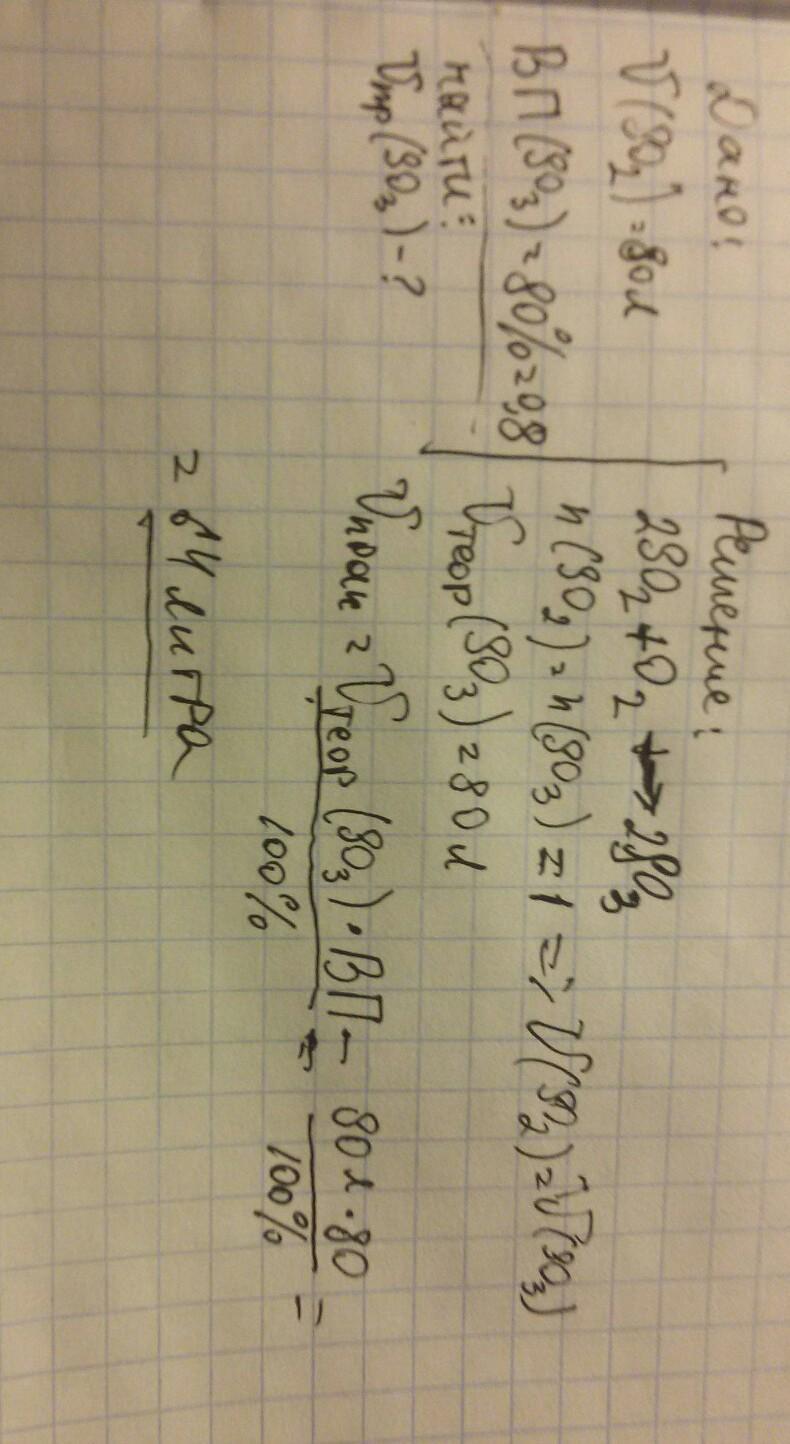 Дано:
V(SO₂) = 80л
ВП(SO₃) = 80% = 0,8
найти:
Vпр(SO₃) - ?
Решение:
2SO₂ + O₂ → 2SO₃
n(SO₂) = n(SO₃) = 1 => V(SO₂) = V(SO₃)
Vтеор(SO₃) = 80 л
Vпрак = Vтеор(SO₃) · ВП / 100% = 80л · 80 / 100% =
= 64 литра